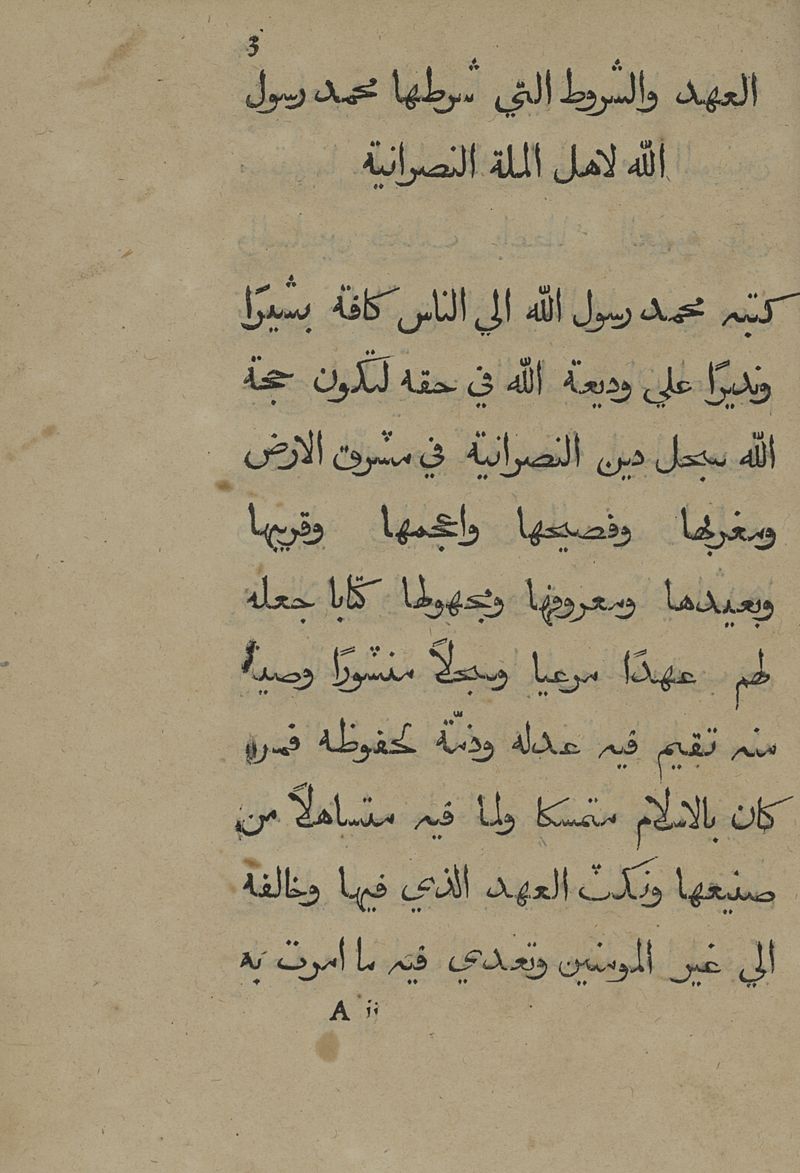 3
العهد والشروط التي شرطها محمد رسول
الله لاهل الملة النصرانية
كتبه محمد رسول الله الي الناس كافة بشيرًا
ونديرًا علي وديعة الله في حقه لتكون حجة
الله سجل دين النصرانية في مشرق الارض
ومغربها وفصيحها واعجمها وقريبها
وبعيدها ومعروفها ومجهولها كتابا جعله
لهم عهدًا مرعيا وسجلاً منشورًا وصية
منه تقيم فيه عدله وذمّة محفوظه فمن
كان بالاسلام متمسكا ولما فيه متساهلاً من
صنيعها ونكث العهد الذي فيها وخالفه
الي غير المومنين وتعدي فيه ما امرت به
A ii